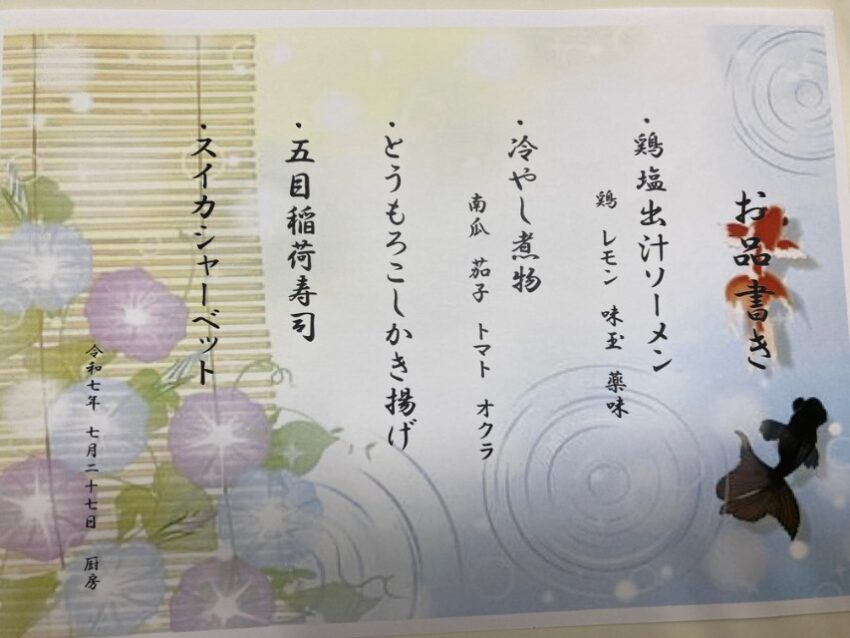 お品書き
・鶏塩出汁ソーメン
鶏 レモン 味玉 薬味
・冷やし煮物
南瓜 茄子 トマト オクラ
・とうもろこしかき揚げ
・五目稲荷寿司
・スイカシャーベット
令和七年 七月二十七日 厨房